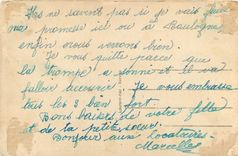 ne savent pas si je vais faire
ma promesse ici ou à Boulogne
enfin nous verrons bien.
Je vous quitte parce que
la trompe a sonné et il va
falloir accourir. Je vous embrasse
tous les 3 bien fort.
Bons baisers de votre fille
et de la petite sœur.
Bonjour aux locataires.
Marcelle